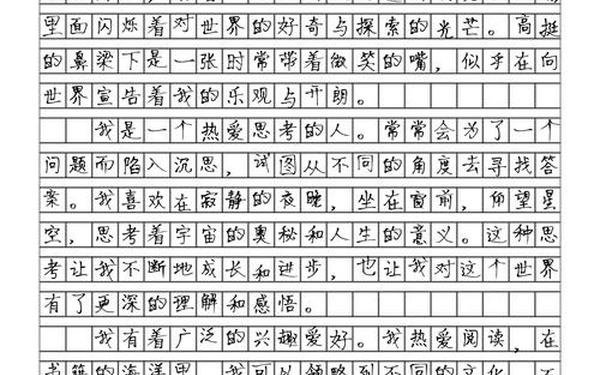 里面闪烁着对世界的好奇与探索的光芒。高挺
的鼻梁下是一张时常带着微笑的嘴，似乎在向
世界宣告着我的乐观与开朗。
我是一个热爱思考的人。常常会为了一个
问题而陷入沉思，试图从不同的角度去寻找答
案。我喜欢在寂静的夜晚，坐在窗前，仰望星
空，思考着宇宙的奥秘和人生的意义。这种思
考让我不断地成长和进步，也让我对这个世界
有了更深的理解和感悟。
我有着广泛的兴趣爱好。我热爱阅读，在
书籍的海洋里，我可以领略到不同的文化、不